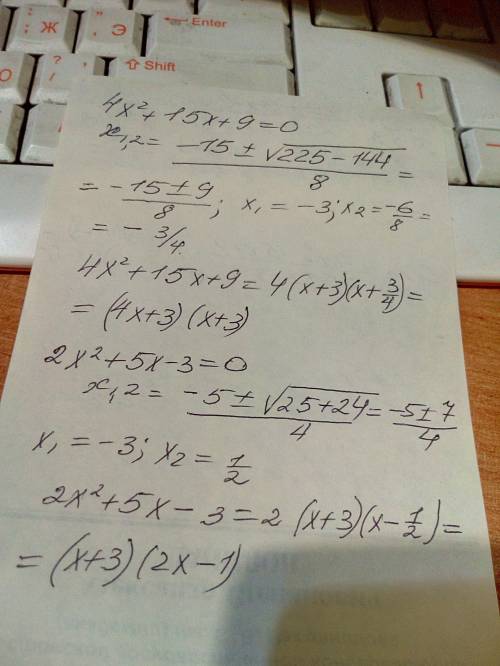 Ж
Э
Enter
Shift
4x²+15x+9=0
x₁,₂= (-15±√(225-144))/8 =
= (-15±9)/8; x₁=-3; x₂=-6/8=
= -3/4.
4x²+15x+9=4(x+3)(x+3/4)=
=(4x+3)(x+3)
2x²+5x-3=0
x₁,₂= (-5±√(25+24))/4 = (-5±7)/4
x₁=-3; x₂=1/2
2x²+5x-3=2(x+3)(x-1/2)=
=(x+3)(2x-1)